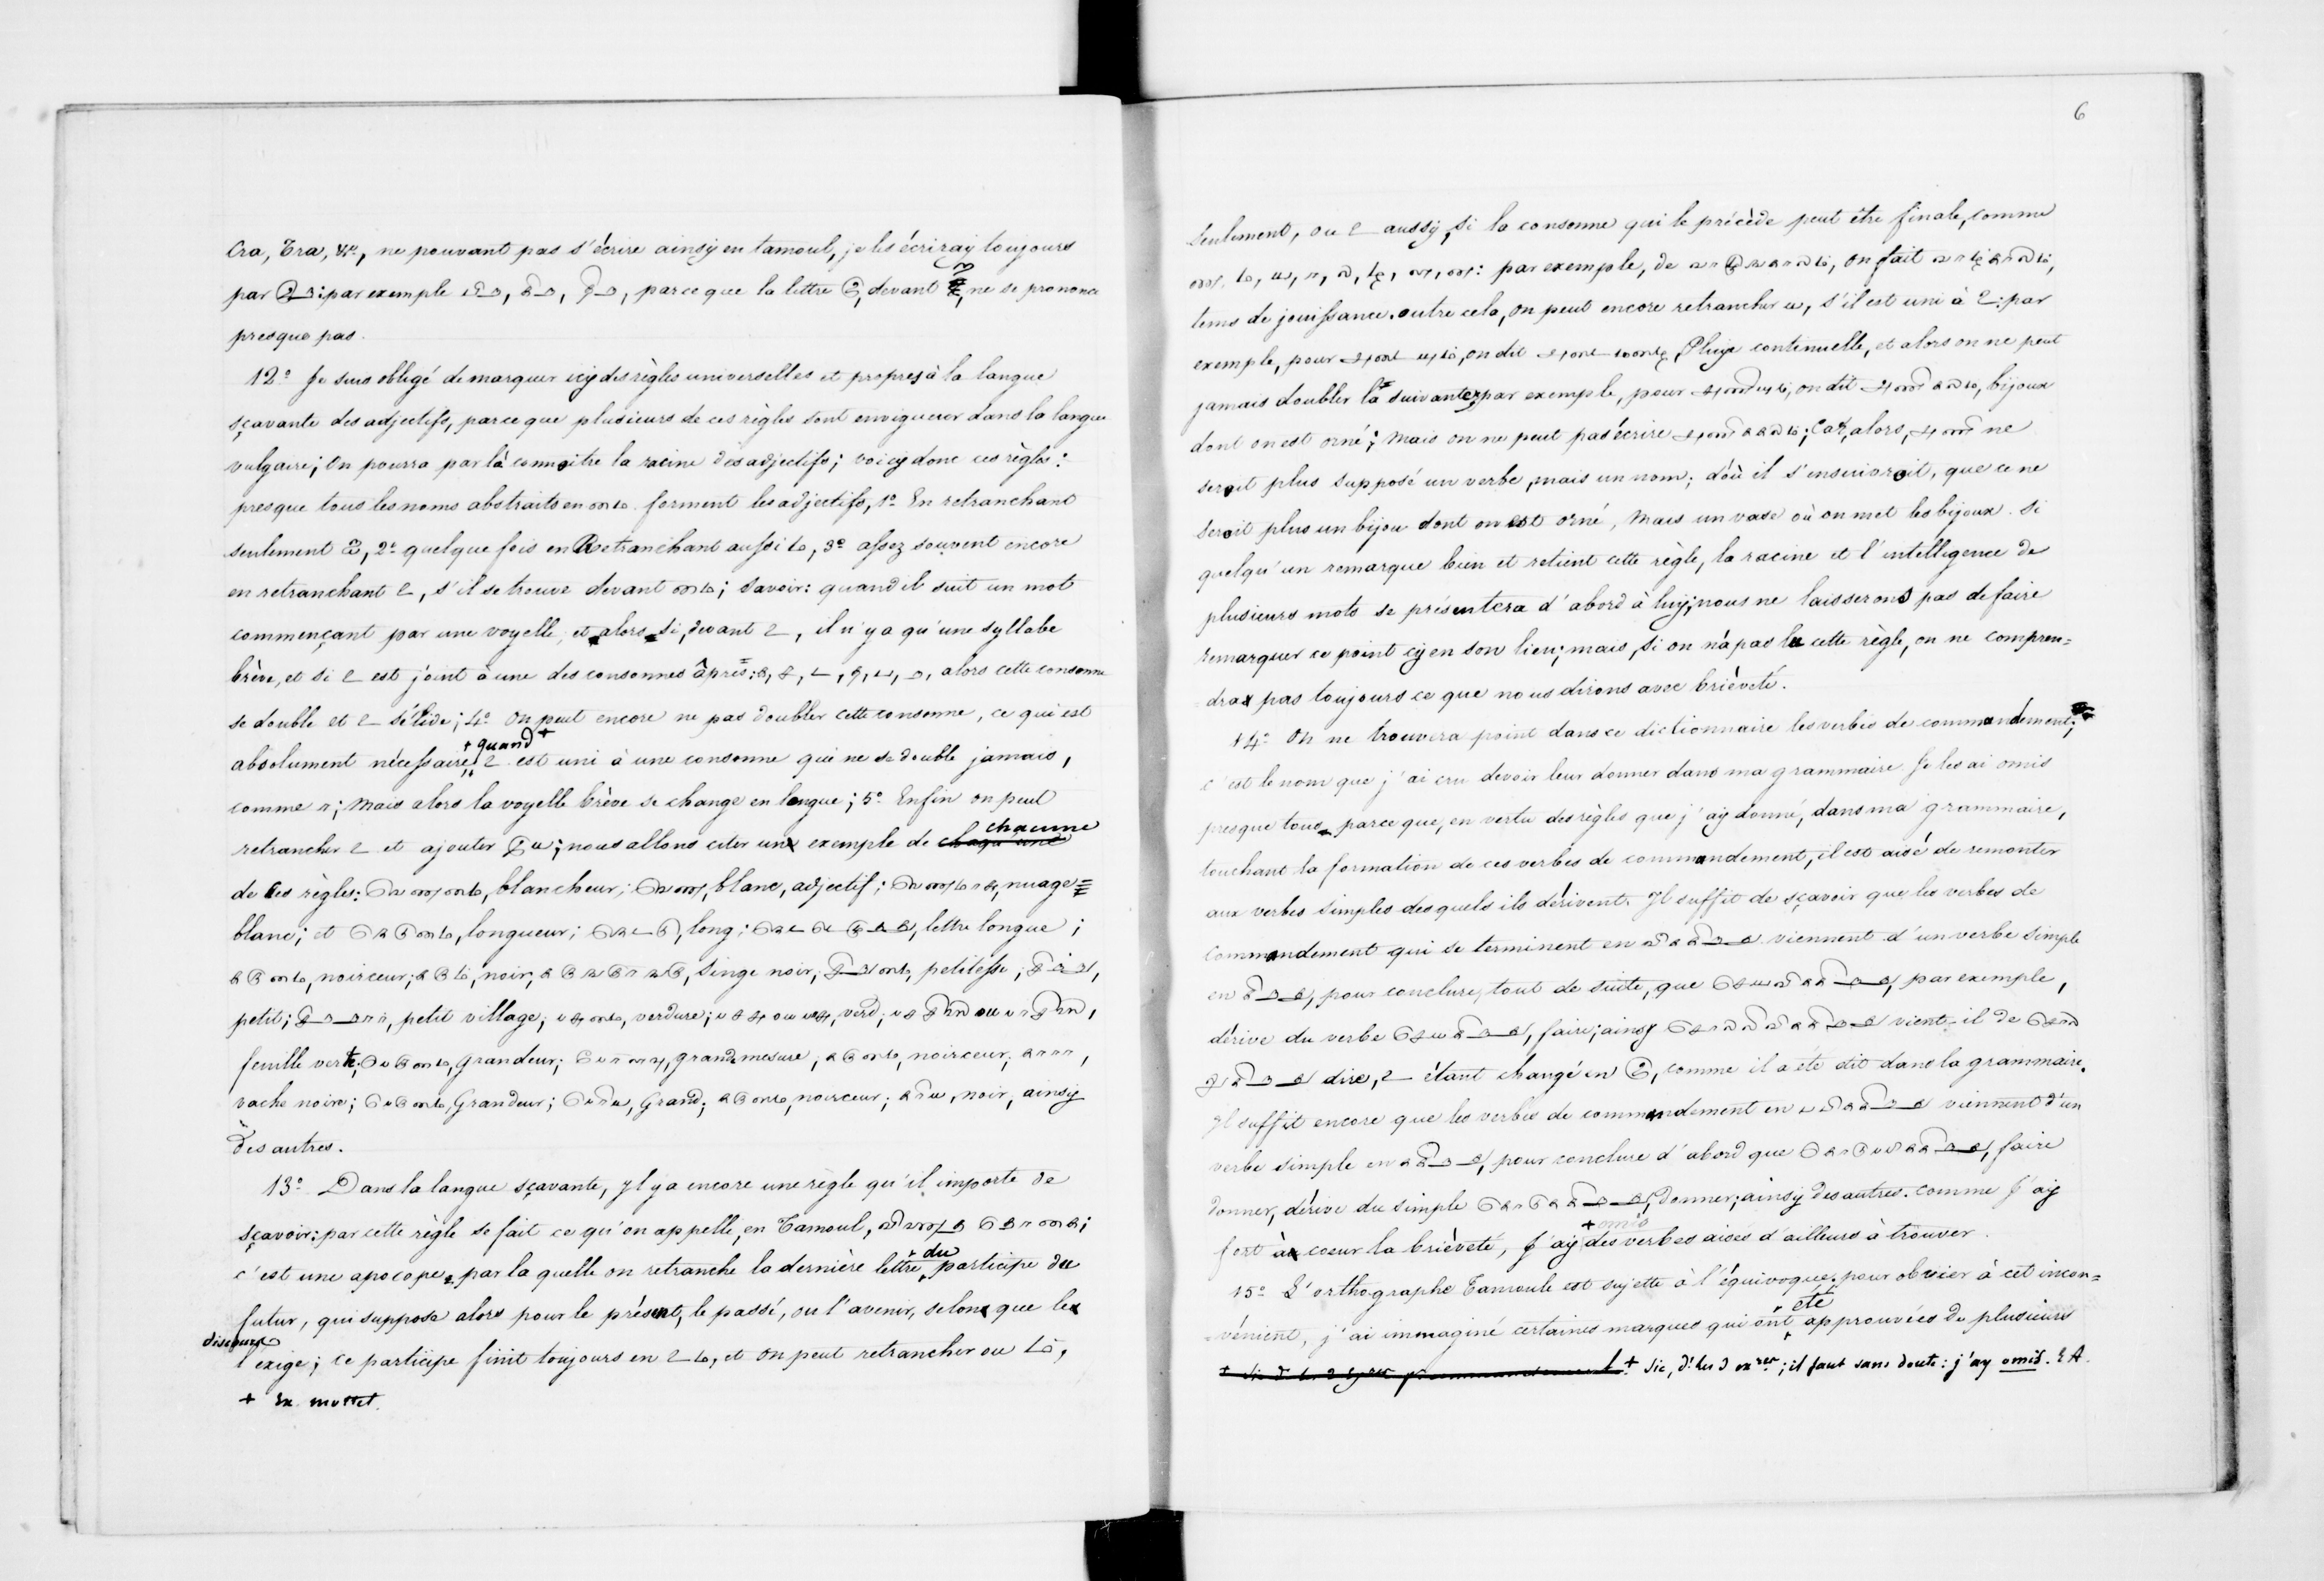 cra, tra, &c., ne pouvant pas s'écrire ainsy en tamoul, je les écriray toujours
par இர: par exemple கிர, திர, parce que la lettre இ, devant ர, ne se prononce
presque pas.
12º Je suis obligé de marquer icy des règles universelles et propres à la langue
sçavante des adjectifs, parce que plusieurs de ces règles sont en vigueur dans la langue
vulgaire; on pourra par là connoitre la racine des adjectifs; voicy donc ces règles:
presque tous les noms abstraits en மை forment les adjectifs, 1º En retranchant
seulement ஐ, 2º quelque fois en Retranchant aussi ம, 3º assez souvent encore
en retranchant உ, s'il se trouve devant மை; savoir: quand il suit un mot
commençant par une voyelle, et alors si, devant உ, il n'y a qu'une syllabe
brève, et si உ est joint à une des consonnes âpres: க, ச, ட, த, ப, ற, alors cette consonne
se double et உ s'élide; 4º On peut encore ne pas doubler cette consonne, ce qui est
absolument nécessaire, + quand + உ est uni à une consonne qui ne se double jamais,
comme ர; mais alors la voyelle brève se change en longue; 5º Enfin on peut
retrancher உ et ajouter இய; nous allons citer un exemple de chaqu'une chacune
de ces règles: வெண்மை, blancheur; வெண், blanc, adjectif; nuage
blanc; et நெடுமை, longueur; நெட்டு, long; lettre longue;
கருமை, noirceur; கரும், noir; singe noir; சிறுமை, petitesse;
petit; petit village; பசுமை, verdure; verd; ou
feuille verte; பெருமை, grandeur; grande mesure, கருமை, noirceur;
vache noire; பெருமை, Grandeur; பெரிய, Grand; கருமை, noirceur; கரிய, noir, ainsy
des autres.
13º Dans la langue sçavante, Il y a encore une règle qu'il importe de
sçavoir: par cette règle se fait ce qu'on appelle, en Tamoul, வினைத் தொகை;
c'est une apocope, par la quelle on retranche la dernière lettre + du participe du
futur, qui suppose alors pour le présent, le passé, ou l'avenir, selon que le
discours
l'exige; ce participe finit toujours en உம, et on peut retrancher ou ம்,
+ Ex. mottet.
6
seulement, ou உ aussy, si la consonne qui le précède peut être finale, comme
par exemple, de on fait
tems de jouissance. outre cela, on peut encore retrancher ய, s'il est uni à உ: par
exemple, pour on dit Pluye continuelle, et alors on ne peut
jamais doubler la suivante; par exemple, pour on dit அணிகலம, bijoux
dont on est orné; mais on ne peut pas écrire அணிககலம; car, alors, அணி ne
seroit plus supposé un verbe, mais un nom; d'où il s'ensuivroit, que ce ne
seroit plus un bijou dont on est orné, mais un vase où on met les bijoux. Si
quelqu'un remarque bien et retient cette règle, la racine et l'intelligence de
plusieurs mots se présentera d'abord à luy; nous ne laisserons pas de faire
remarquer ce point cy en son lieu; mais, si on n'a pas lu cette règle, on ne compren=
=dra pas toujours ce que nous dirons avec brièveté.
14º On ne trouvera point dans ce dictionnaire les verbes de commandement;
c'est le nom que j'ai cru devoir leur donner dans ma grammaire. Je les ai omis
presque tous, parce que, en vertu des règles que j'ay donné, dans ma grammaire,
touchant la formation de ces verbes de commandement, il est aisé de remonter
aux verbes simples desquels ils dérivent. Il suffit de sçavoir que les verbes de
commandement qui se terminent en விக்கிறது viennent d'un verbe simple
en கிறது, pour conclure, tout de suite, que செயவிககிறது, par exemple,
dérive du verbe செயகிறது, faire; ainsy vient-il de சொல
லுகிறது dire, உ étant changé en இ, comme il a été dit dans la grammaire.
Il suffit encore que les verbes de commandement en ப்பிககிறது viennent d'un
verbe simple en ககிறது, pour conclure d'abord que faire
donner, dérive du simple கொடுககிறது, donner; ainsy des autres. Comme J'ay
fort à coeur la brièveté, J'ay + omis des verbes aisés d'ailleurs à trouver.
15º L'orthographe Tamoule est sujette à l'équivoque; pour obvier à cet incon=
=vénient, j'ai immaginé certaines marques qui ont été approuvées de plusieurs
+ Sic, d. les 2 exres; il faut sans doute: j'ay omis. E A.